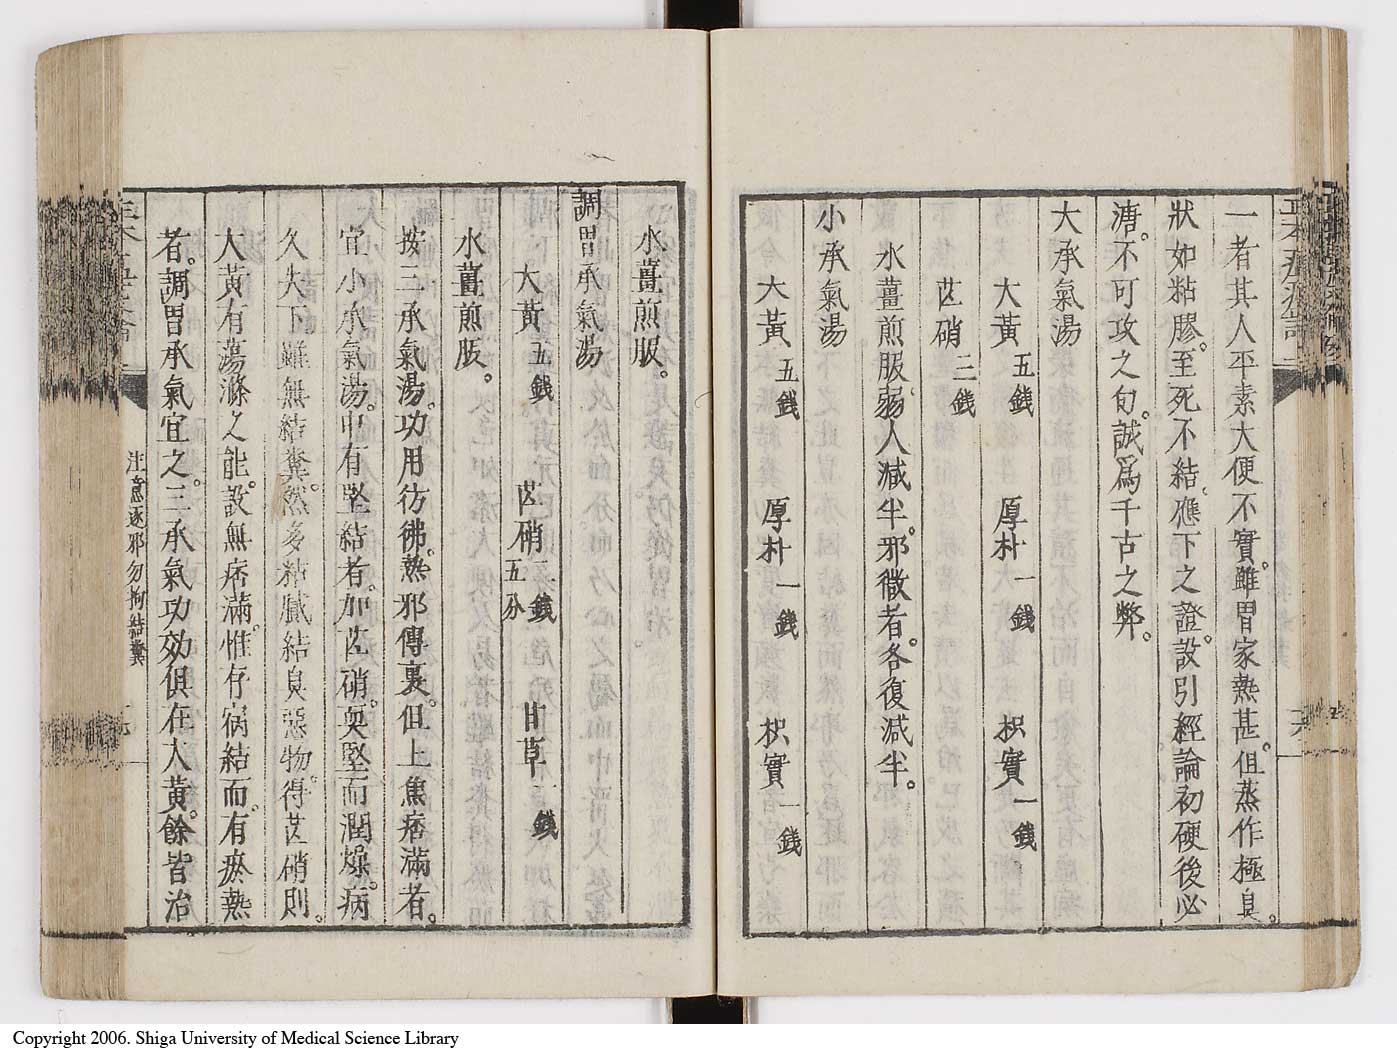 一者其人平素大便不實。雖胃家熱甚。但蒸作極臭。
狀如粘膠。至死不結。應下之證。設引經論初硬後必
溏。不可攻之句。誠爲千古之弊。
大承氣湯
大黃五錢 厚朴一錢 枳實一錢
芒硝二錢
水薑煎服。弱人減半。邪微者。各復減半。
小承氣湯
大黃五錢 厚朴一錢 枳實一錢
水薑煎服。
調胃承氣湯
大黃五錢 芒硝二錢五分 甘草一錢
水薑煎服。
按三承氣湯。功用彷彿。熱邪傳裏。但上焦痞滿者。
宜小承氣湯。中有堅結者。加芒硝。耎堅而潤燥。病
久失下。雖無結糞。然多粘膩結臭惡物。得芒硝則。
大黃有蕩滌之能。設無痞滿。惟存宿結而。有瘀熱
者。調胃承氣宜之。三承氣功效俱在大黃。餘皆治
注意逐邪勿拘結糞
Copyright 2006. Shiga University of Medical Science Library